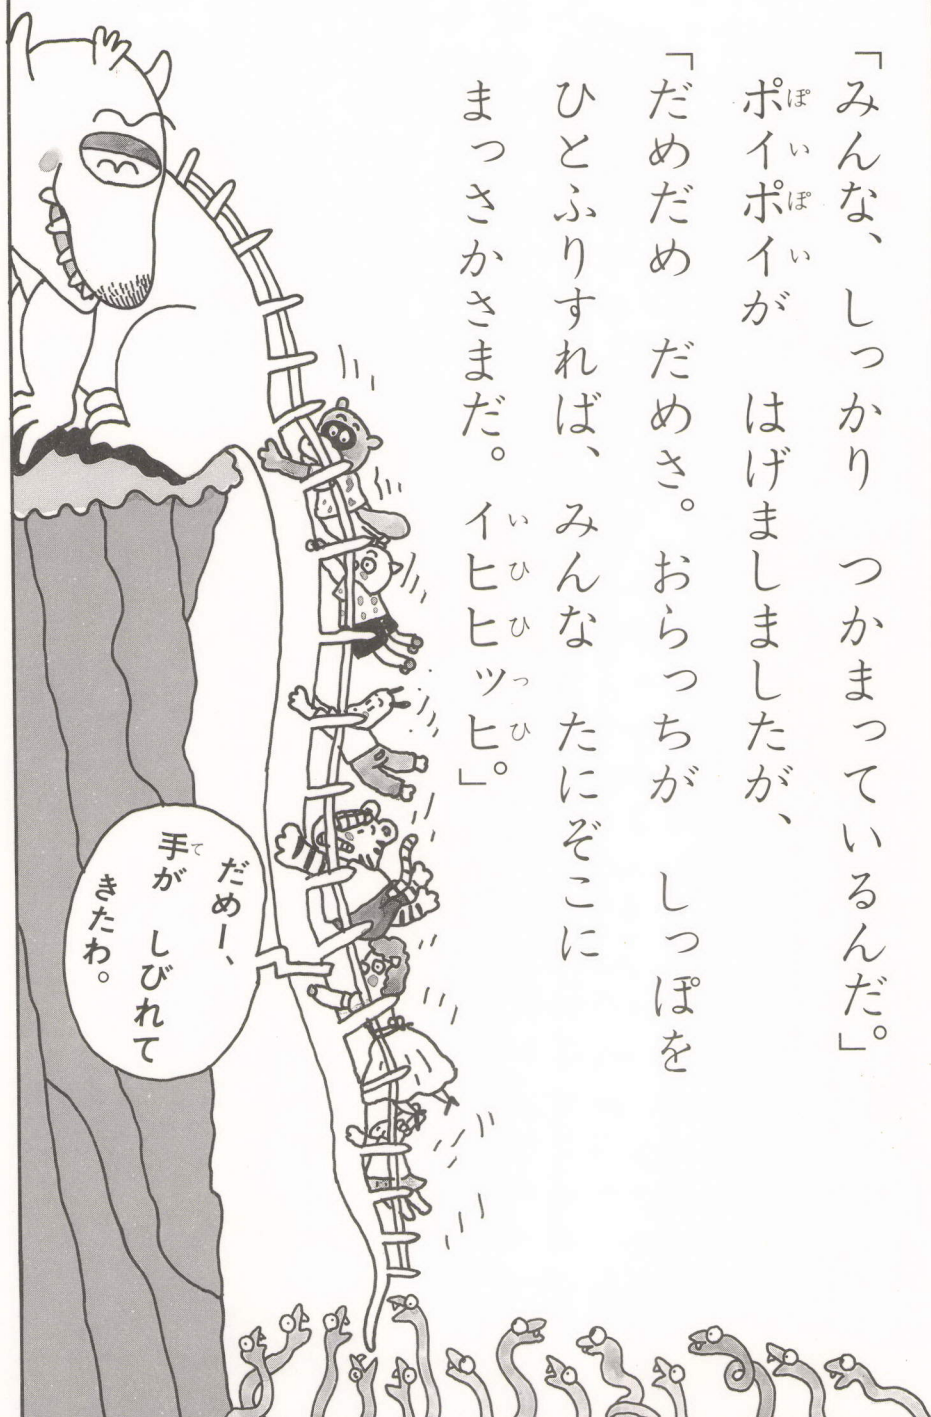 「みんな、しっかり つかまっているんだ。」
ポイポイが はげましましたが、
「だめだめ だめさ。おらっちが しっぽを
ひとふりすれば、みんな たにぞこに
まっさかさまだ。イヒヒッヒ。」
だめー、
手が しびれて
きたわ。